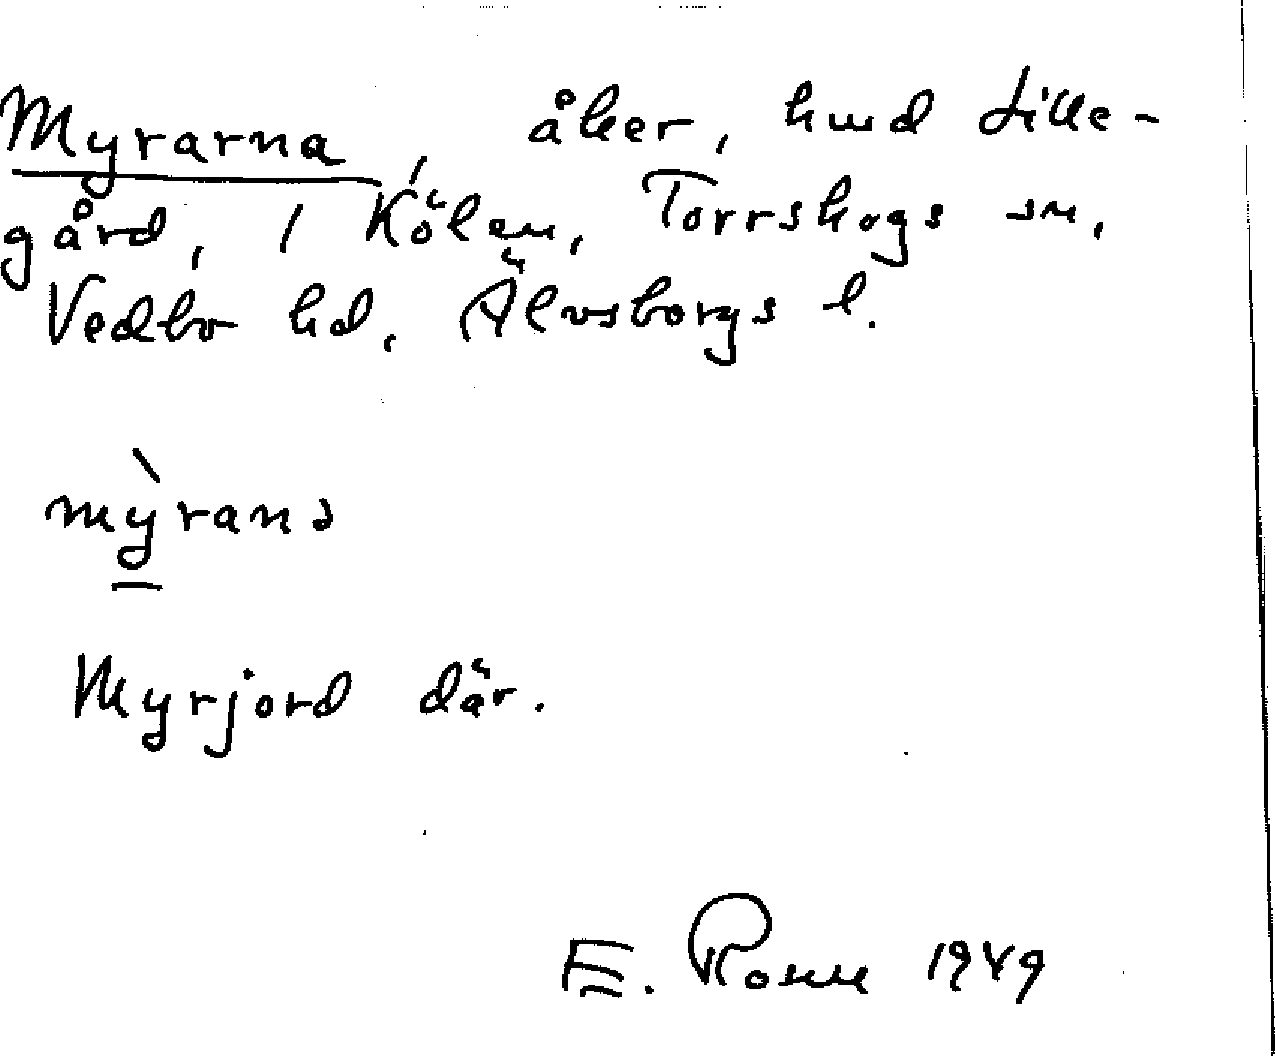 Myrarna, åker, hmd Lille-
gård, 1 Kölen, Torrskogs sn,
Vedbo hd, Älvsborgs l.
mỳrana
Myrjord där.
E. Rosell 1949